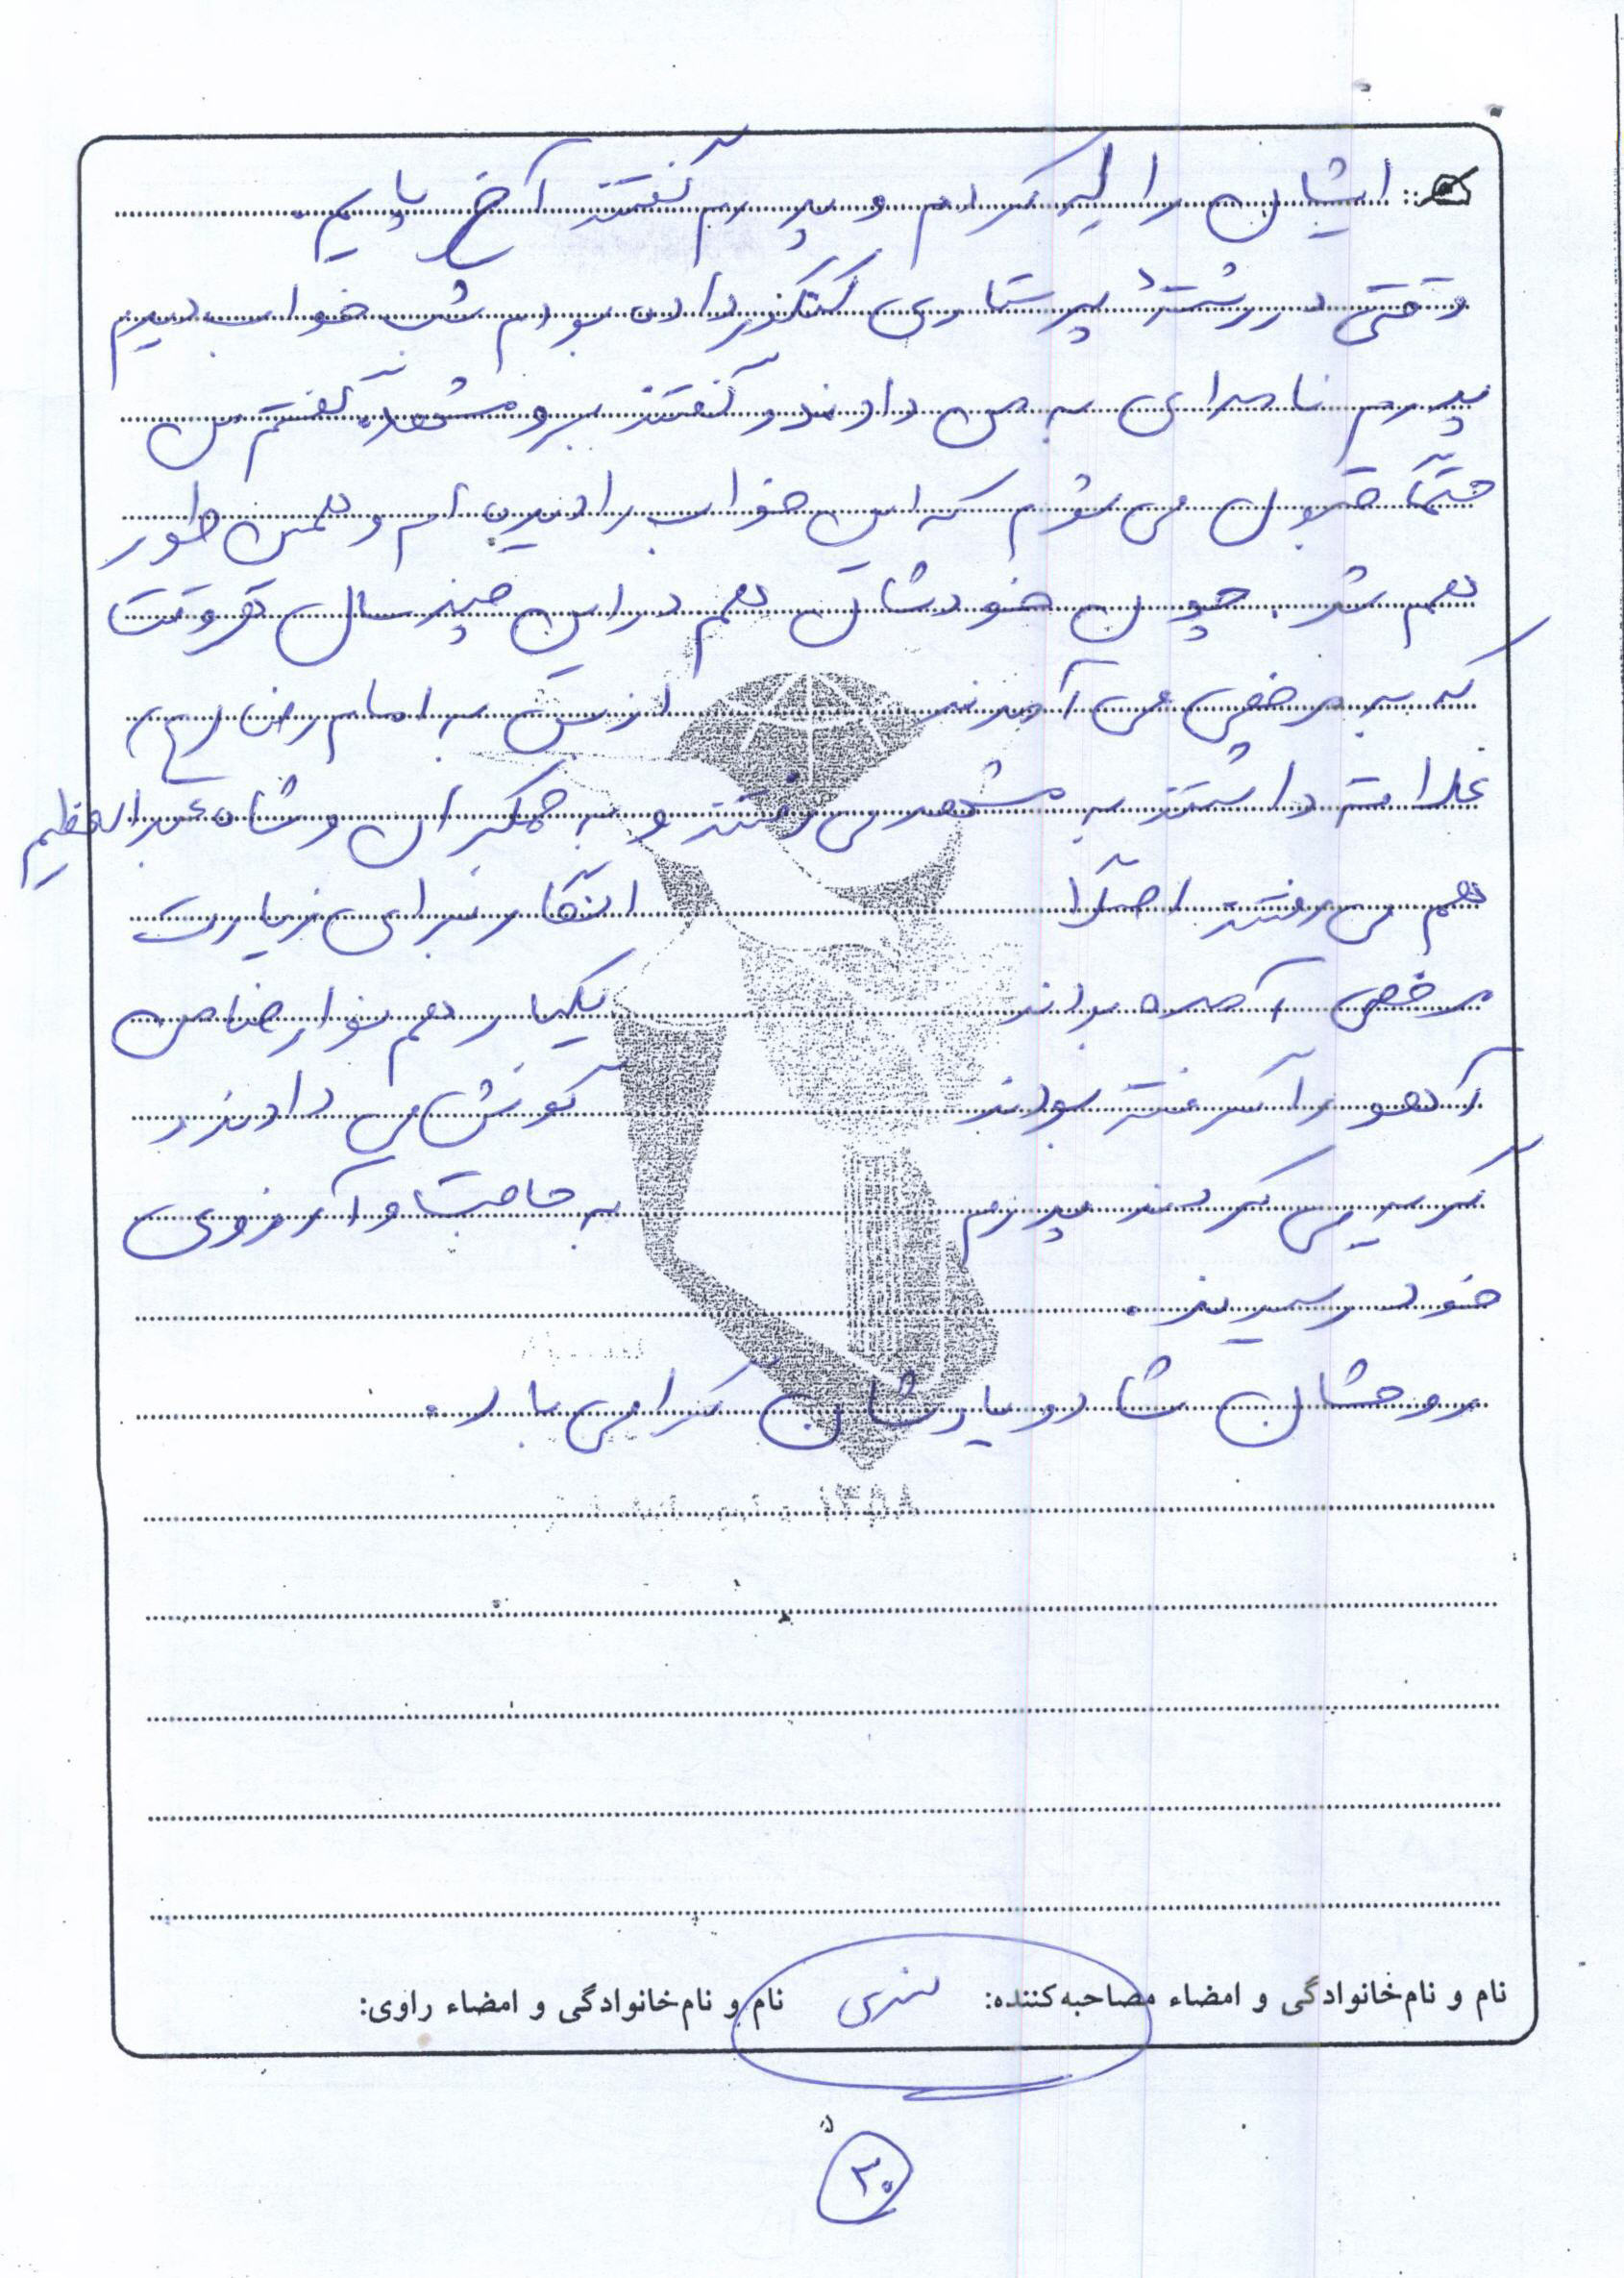 ایشان را لیز کردم و پدرم گفتند آخ پایم.
وقتی در رشتهٔ پرستاری کنکور داده بودم شب خواب دیدم
پدرم نامه‌ای به من دادند و گفتند برو مشهد. گفتم من
حتماً قبول می شوم که این خواب را دیده ام و همین طور
هم شد. چون خودشان هم در این چند سال هر وقت
که به مرخصی می آمدند از بس به امام رضا (ع)
علاقه داشتند به مشهد می رفتند و به جمکران و شاه عبدالعظیم
هم می رفتند اصلاً انگار برای زیارت
مرخصی آمده بودند یکبار هم نوار ضامن
آهو را گرفته بودند گوش می دادند و
گریه می کردند پدرم به حاجت و آرزوی
خود رسیدند.
روحشان شاد و یادشان گرامی باد.
۱۳۵۸
نام و نام‌خانوادگی و امضاء مصاحبه‌کننده: نام و نام‌خانوادگی و امضاء راوی:
۳۰